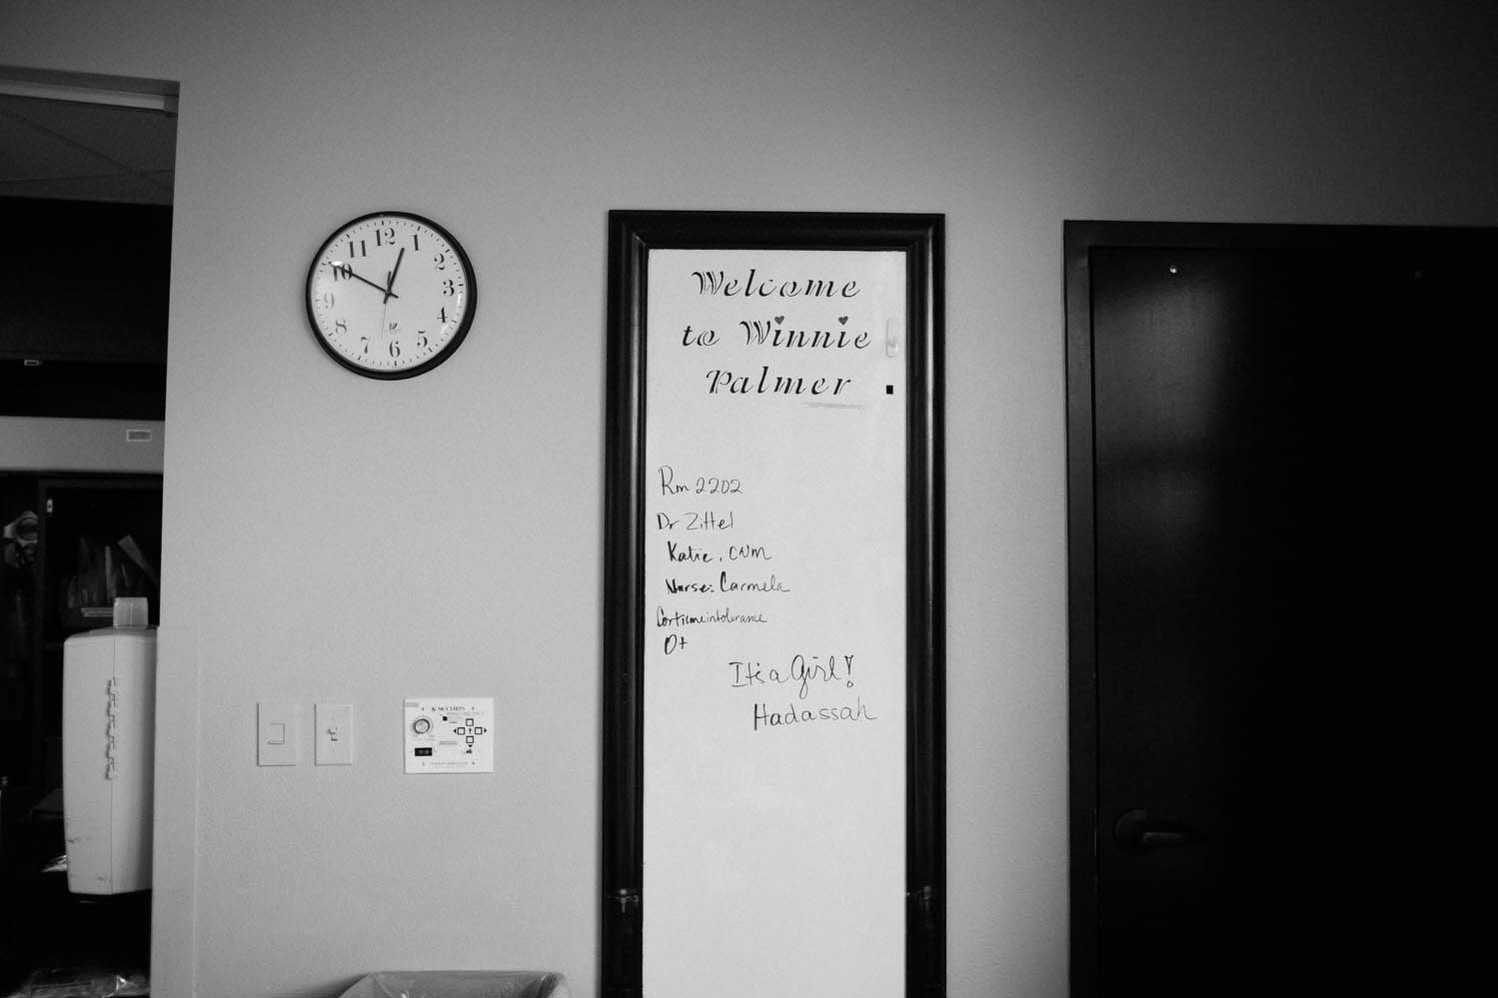 12
1
2
3
4
5
6
7
8
9
10
11
Welcome
to Winnie
Palmer
Rm 2202
Dr Zittel
Katie, CNM
Nurse: Carmela
intolerance
O+
It's a girl!
Hadassah